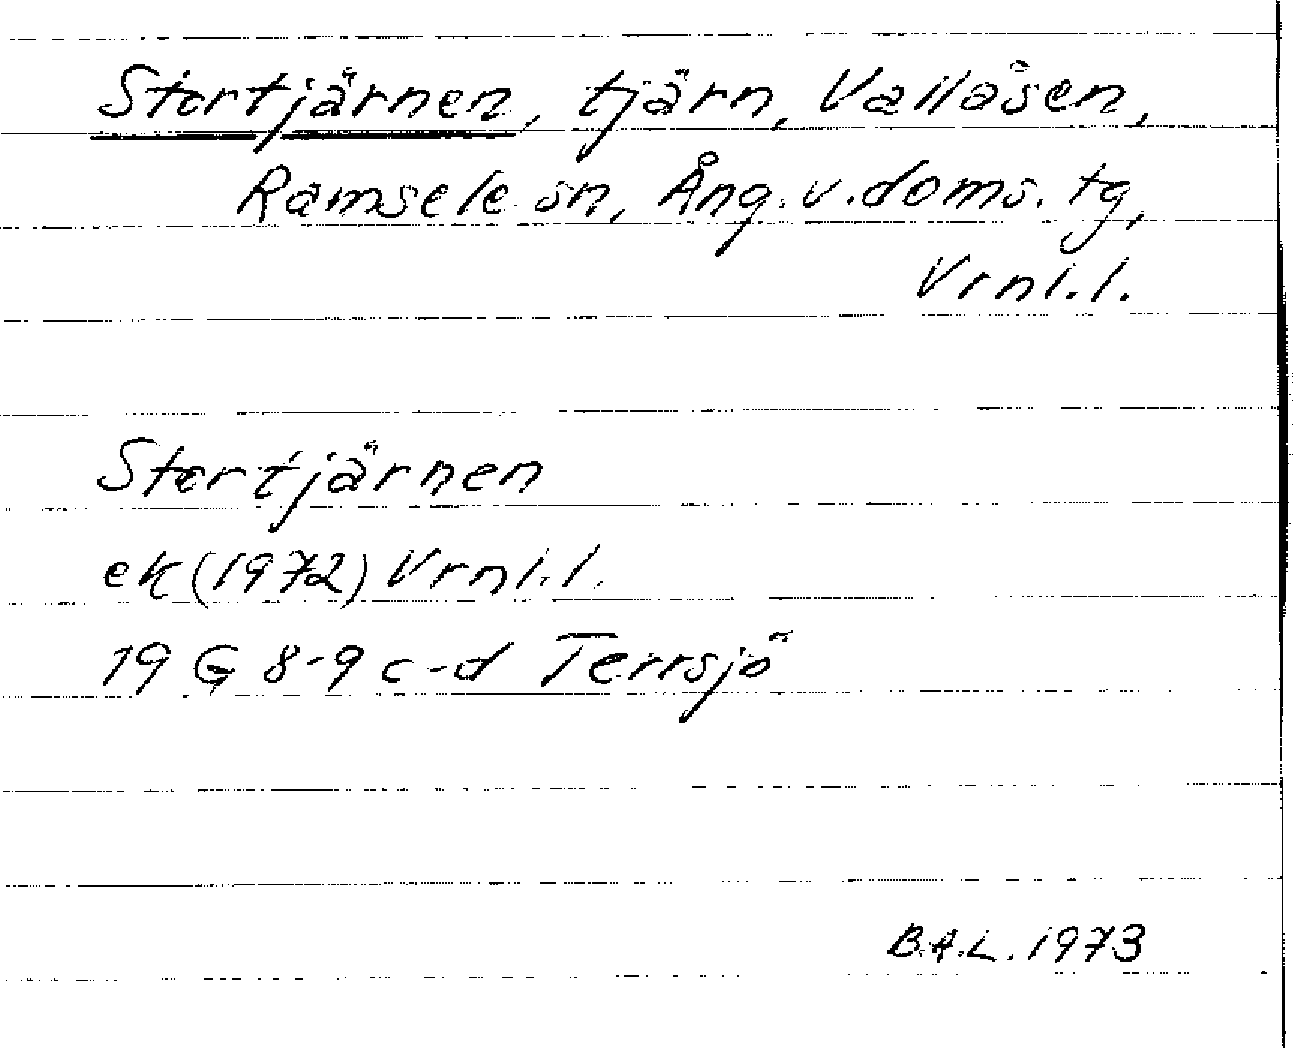 Stortjärnen, tjärn, Vallåsen,
Ramsele sn, Ång. v. doms. tg,
Vrnl. l.
Stortjärnen
ek (1972) Vrnl. l.
19 G 8-9 c-d Terrsjö
B.A.L. 1973